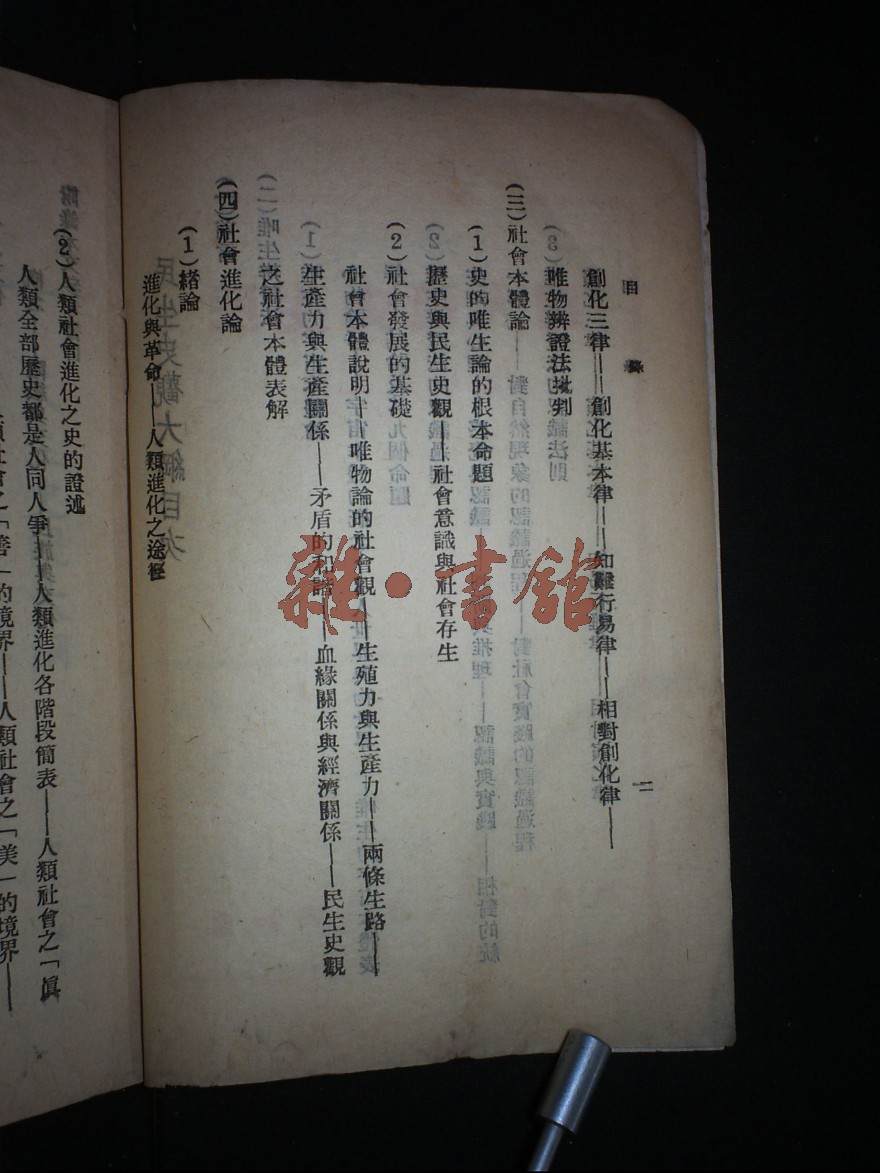 目錄
二
創化三律——創化基本律——知難行易律——相對創化律——
(3)唯物辨證法批判
(三)社會本體論
(1)史的唯生論的根本命題
歷史與民生史觀——社會意識與社會存生
(2)社會發展的基礎
社會本體說明——唯物論的社會觀——生殖力與生產力——兩條生路——
生產力與生產關係——矛盾的和諧——血緣關係與經濟關係——民生史觀
之社會本體表解
(四)社會進化論
(1)緒論
進化與革命——人類進化之途徑
(2)人類社會進化之史的證述
人類全部歷史都是人同人爭——人類進化各階段簡表——人類社會之「眞
社會之「善」的境界——人類社會之「美」的境界——
雜·書館